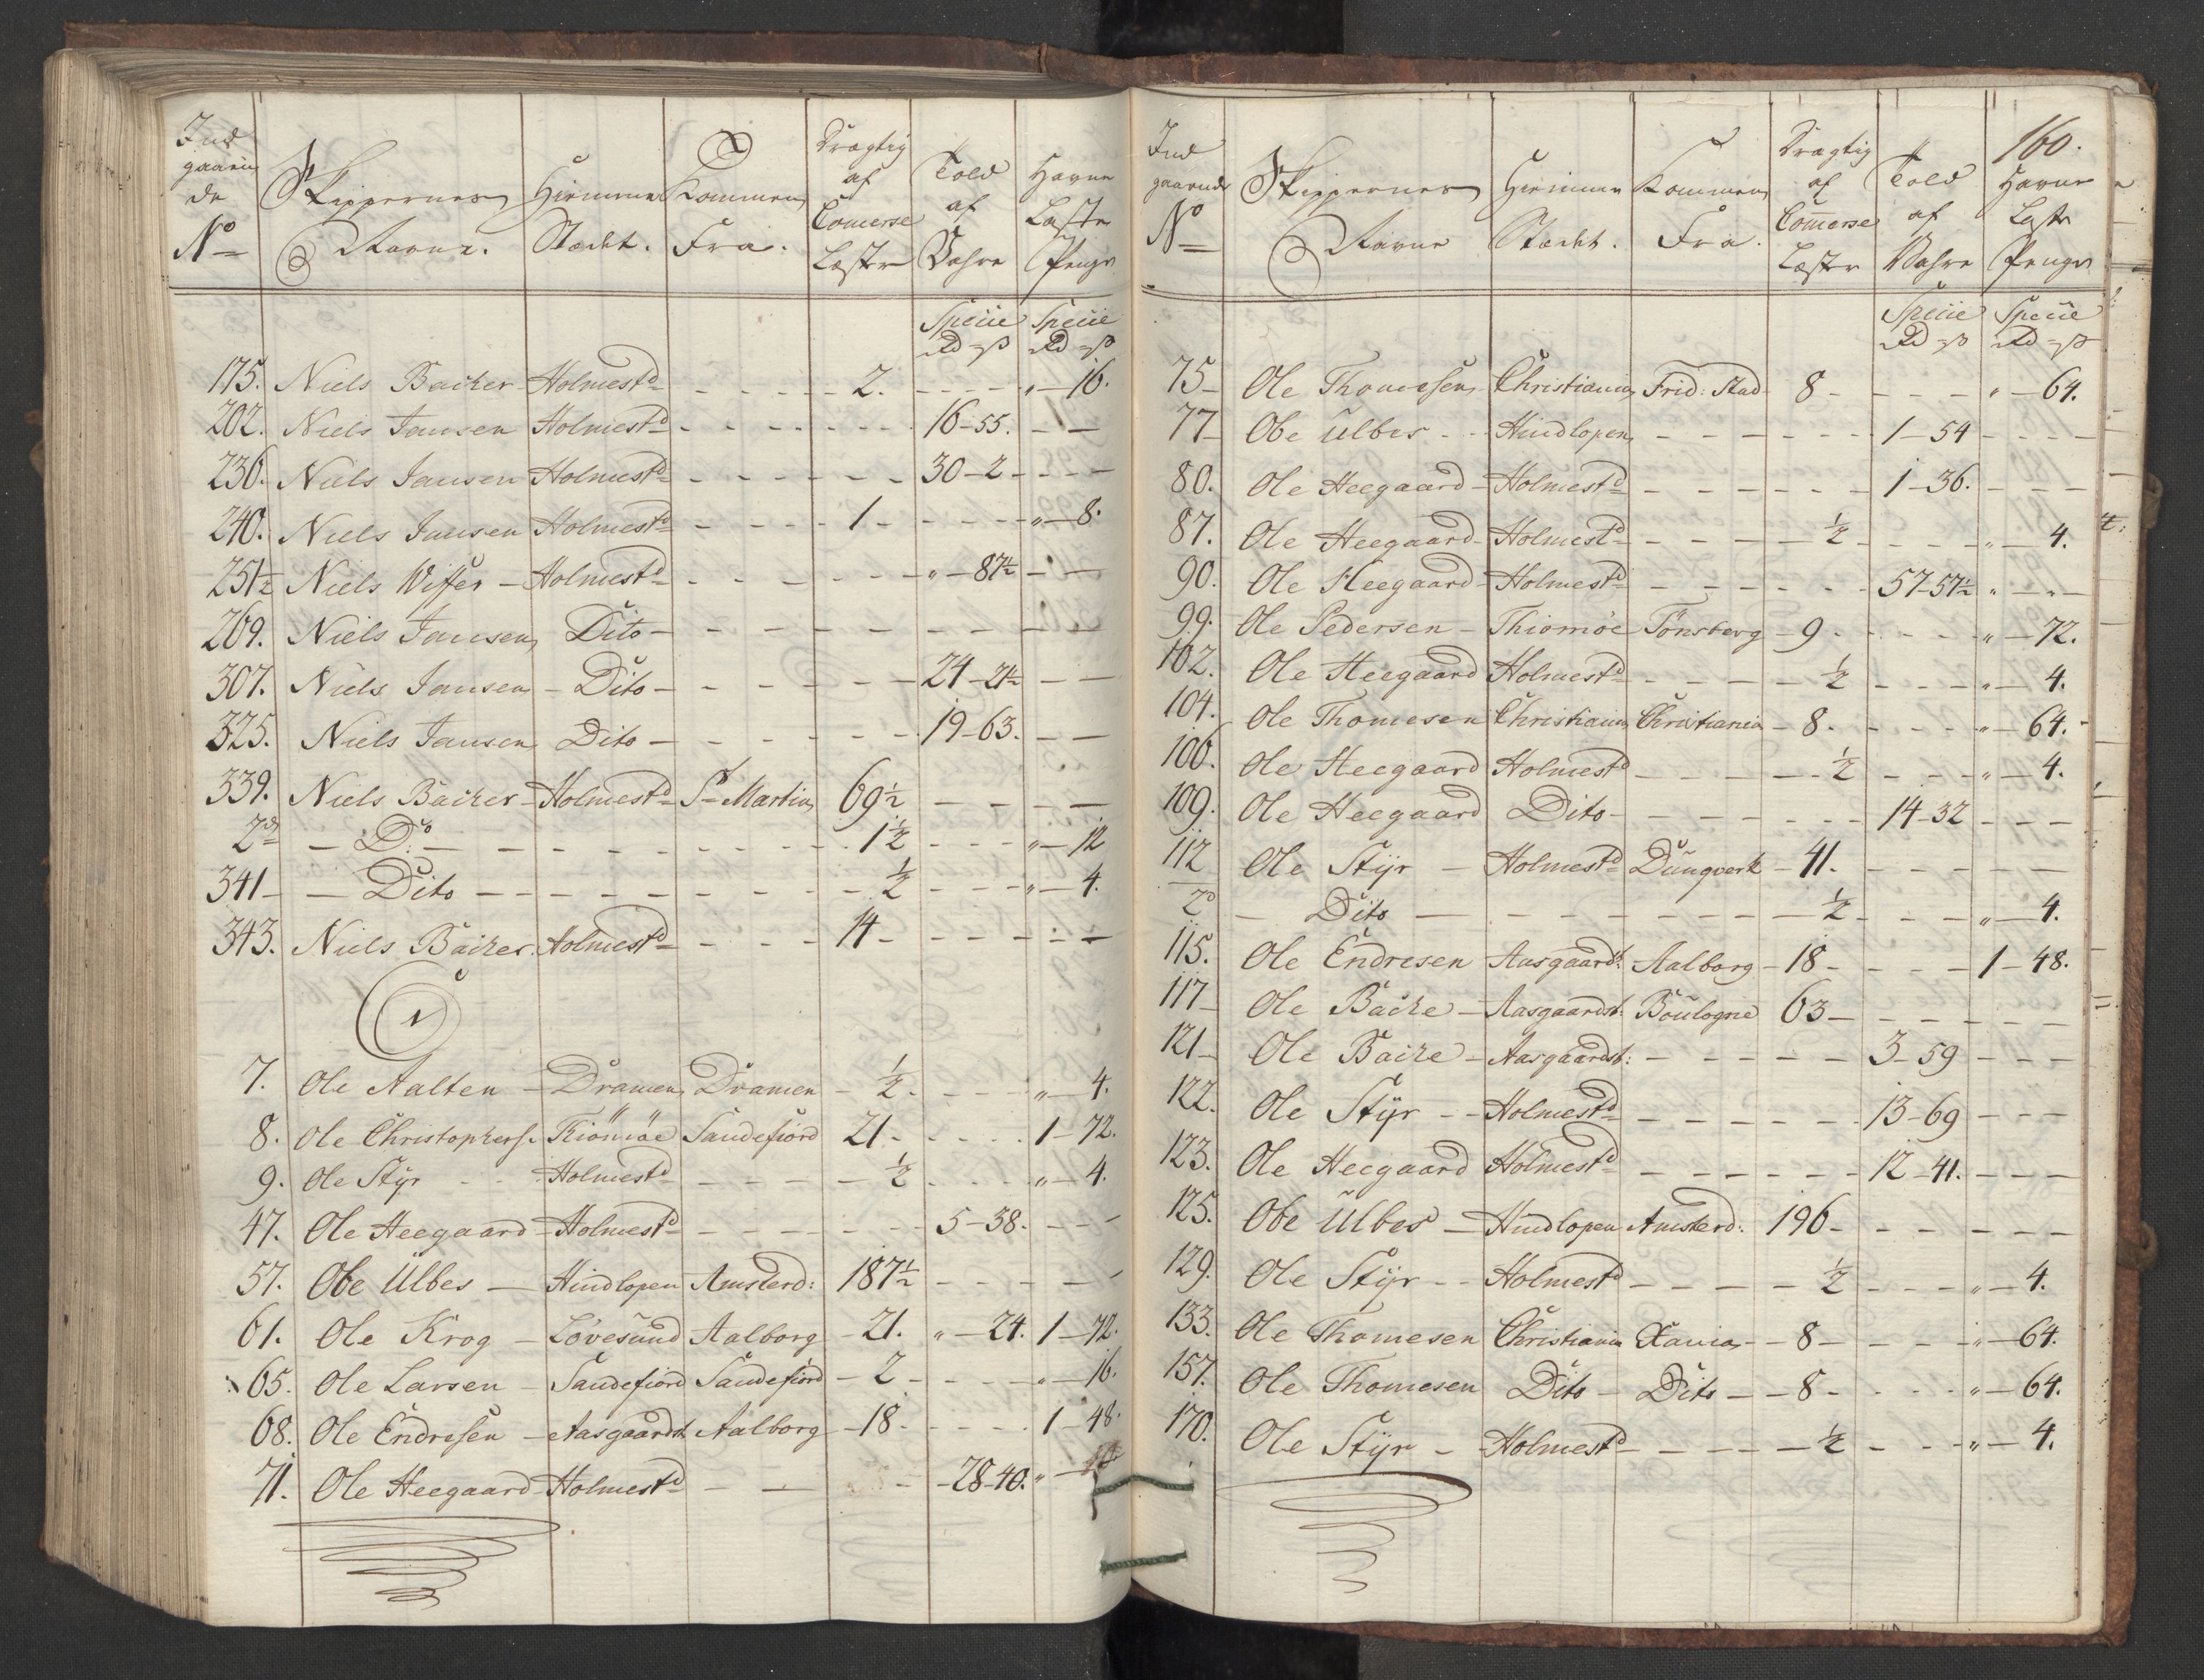 Ind gaaen de No Skippernes Navne. Hiemme Stædet. Kommen Fra. Drægtig af Comerse Læster Told af Vahre Havne Læste Penge
Specie Rd ß Specie Rd ß
175. Niels Backer Holmestd - - - 2. - - - " - 16.
202. Niels Jansen Holmestd - - - - 16-55. - -
236. Niels Jansen Holmestd - - - - 30-2 - - -
240. Niels Jansen Holmestd - - - 1 - - - " - 8.
251½ Niels Wisser - Holmestd - - - " - 87½ - -
269. Niels Jansen Dito - - - - - - -
307. Niels Jansen - Dito - - - - 24-21½ - -
325. Niels Jansen Dito - - - - 19-63. - -
339. Niels Backer - Holmestd St Martin 69½ - - - -
2d - Do - - - - - 1½ - - - " - 12
341 - - Dito - - - - - ½ - - - " - 4.
343. Niels Backer Holmestd - - - 14 - - - - -
O
7. Ole Aalten - Dramen Dramen - ½ - - - " - 4.
8. Ole Christophers. Tiömöe Sandefiord 21 - - - 1-72.
9. Ole Styr - - Holmestd - - - - ½ - - - " - 4.
47. Ole Heegaard - Holmestd - - - - 5-38. - - -
57. Obe Ulbes - Hindlopen Amsterd: 187½ - - - -
61. Ole Krog - Lövesund Aalborg - 21. " - 24. 1-72.
65. Ole Larsen - Sandefiord Sandefiord - 2 - - - " - 16.
68. Ole Endresen - Aasgaardst Aalborg - 18 - - - 1-48.
71. Ole Heegaard - Holmestd - - - 28-40. " -
160.
Ind gaaende No Skippernes Navne Hiemme Stædet. Kommen Fra. Drægtig af Comerse Læster Told af Vahre Havne Læste Penge
Specie Rd ß Specie Rd ß
75 - Ole Thomesen Christiania Frid: Stad 8 - - - - " - 64.
77 - Obe Ulbes - - Hindlopen - - - - 1-54 - - -
80. Ole Heegaard - Holmestd - - - - 1-36. - - -
87. Ole Heegaard - Holmestd - - - - ½ - - - " - 4.
90. Ole Heegaard - Holmestd - - - - 57-57½ " - " -
99. Ole Pedersen - Thiomöe Tönsberg - 9 - - - " - 72.
102. Ole Heegaard Holmestd - - - - ½ - - - " - 4.
104. Ole Thomesen Christiania Christiania - 8. - - - " - 64. -
106. Ole Heegaard Holmestd - - - - ½ - - - " - 4.
109. Ole Heegaard Dito - - - - - 14-32 - - -
112 Ole Styr - Holmestd Dunqverk - 41. - - - - -
2d - Dito - - - - - ½ - - - " - 4.
115. Ole Endresen Aasgaardst: Aalborg - 18 - - - - 1-48.
117 - Ole Backe - Aasgaardst: Boulogne 63 - - - - - -
121 - Ole Backe - Aasgaardst: - - - - 3-59 - - -
122. Ole Styr - - Holmestd - - - - - 13-69 - - -
123. Ole Heegaard Holmestd - - - - - 12-41. - - -
125. Obe Ulbes - Hindlopen Amsterd: 196 - - - - - -
129. Ole Styr - - Holmestd - - - - ½ - - - " - 4.
133. Ole Thomesen Christiania Xania - - 8 - - - - " - 64.
157. Ole Thomesen Dito - Dito - - 8 - - - - " - 64.
170. Ole Styr - - Holmestd - - - - ½ - - - " - 4.